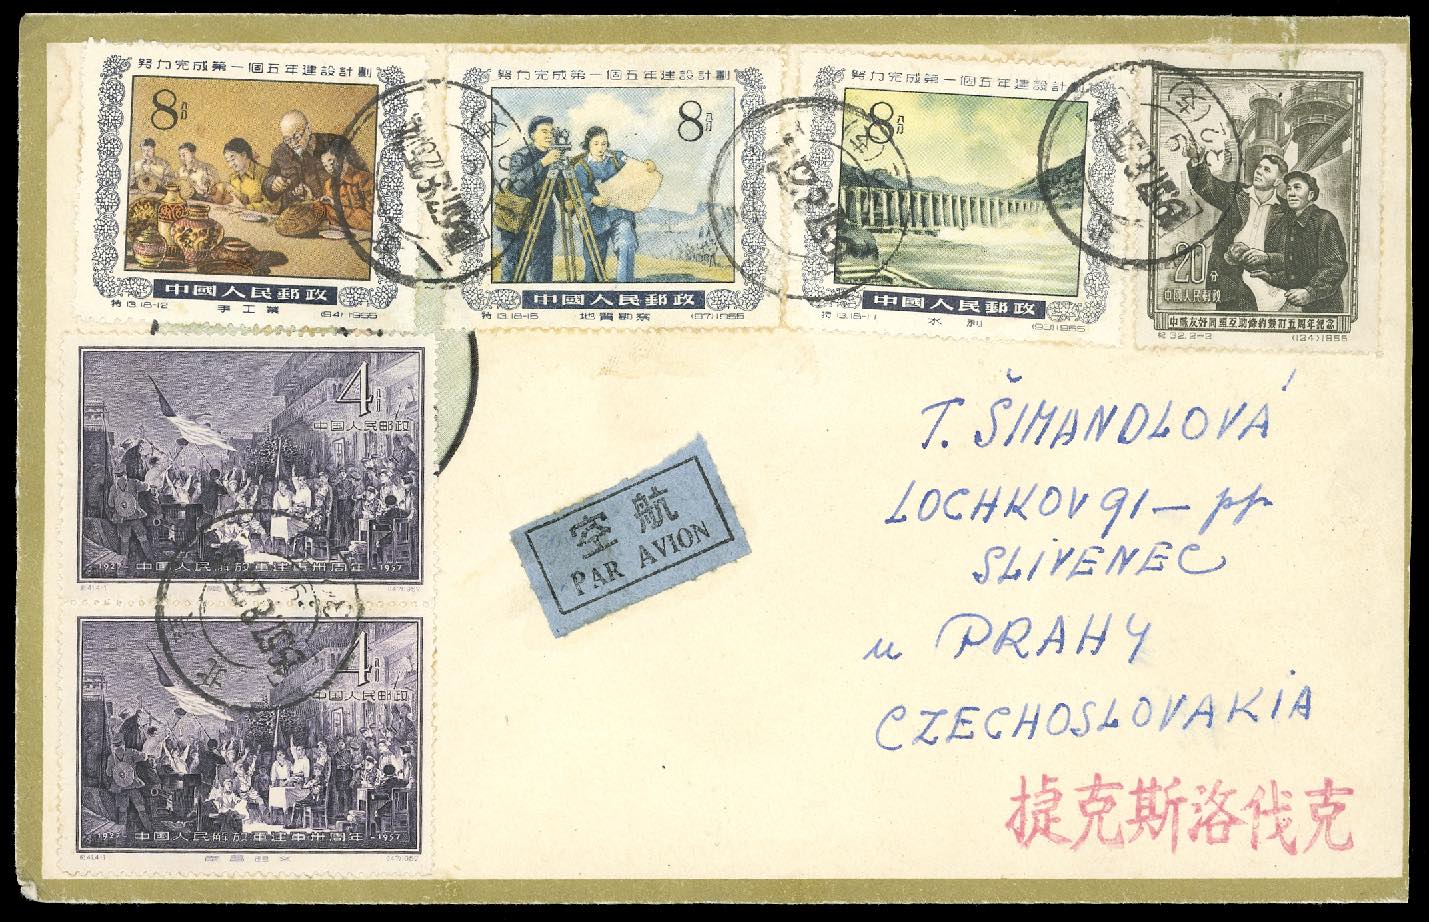 努力完成第一個五年建設計劃
8分
中國人民郵政
特13.18-12 手工業 (94)1955
努力完成第一個五年建設計劃
8分
中國人民郵政
特13.18-15 地質勘察 (97)1955
努力完成第一個五年建設計劃
8分
中國人民郵政
特13.18-11 水利 (93)1955
20分
中國人民郵政
中蘇友好同盟互助條約簽訂五周年紀念
紀32.2-2 (124)1955
4分
中国人民邮政
1927-中国人民解放軍建軍卅周年-1957
紀41.4-1
4分
中国人民邮政
1927-中国人民解放軍建軍卅周年-1957
紀41.4-1 南昌起义
北
航空
PAR AVION
T. ŠIMANDLOVÁ
LOCHKOV 91 — pp
SLIVENEC
u PRAHY
CZECHOSLOVAKIA
捷克斯洛伐克